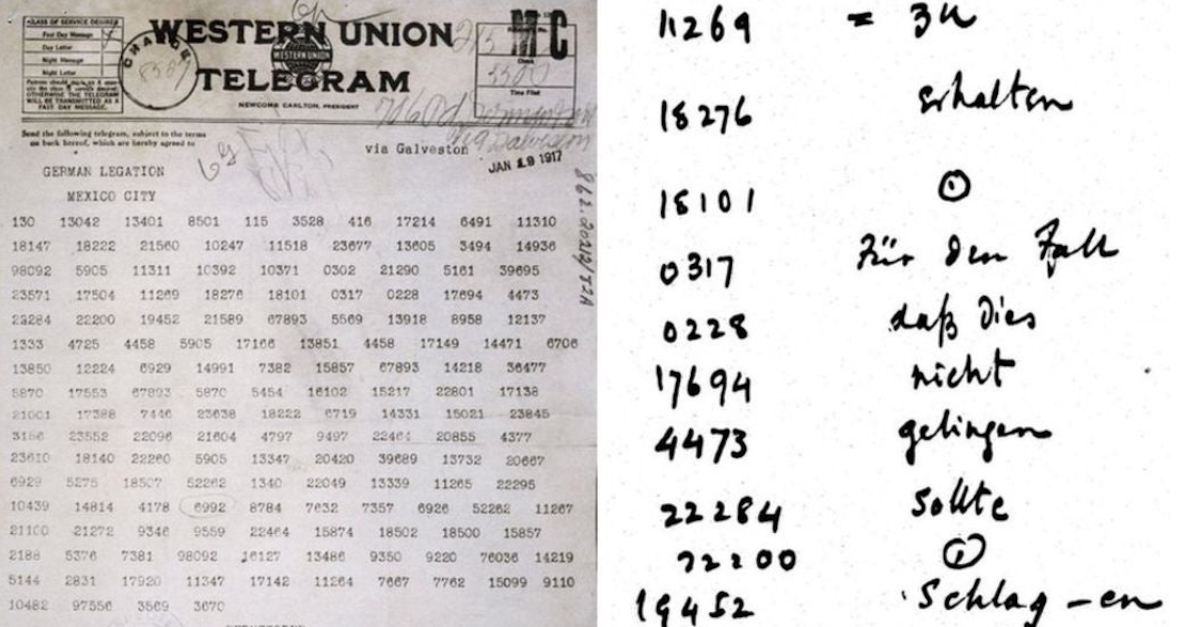 CLASS OF SERVICE DESIRED
Fast Day Message
Day Letter
Night Message
Night Letter
Patrons should mark an X opposite the class of service desired; OTHERWISE THE TELEGRAM WILL BE TRANSMITTED AS A FAST DAY MESSAGE.
CHARGE
WESTERN UNION
WESTERN UNION
TELEGRAM
NEWCOMB CARLTON, PRESIDENT
Time Filed
Send the following telegram, subject to the terms
on back hereof, which are hereby agreed to
via Galveston
JAN 19 1917
GERMAN LEGATION
MEXICO CITY
130 13042 13401 8501 115 3528 416 17214 6491 11310
18147 18222 21560 10247 11518 23677 13605 3494 14936
98092 5905 11311 10392 10371 0302 21290 5161 39695
23571 17504 11269 18276 18101 0317 0228 17694 4473
22284 22200 19452 21589 67893 5569 13918 8958 12137
1333 4725 4458 5905 17166 13851 4458 17149 14471 6706
13850 12224 6929 14991 7382 15857 67893 14218 36477
5870 17553 67893 5870 5454 16102 15217 22801 17138
21001 17388 7446 23638 18222 6719 14331 15021 23845
3156 23552 22096 21604 4797 9497 22464 20855 4377
23610 18140 22260 5905 13347 20420 39689 13732 20667
6929 5275 18507 52262 1340 22049 13339 11265 22295
10439 14814 4178 6992 8784 7632 7357 6926 52262 11267
21100 21272 9346 9559 22464 15874 18502 18500 15857
2188 5376 7381 98092 16127 13486 9350 9220 76036 14219
5144 2831 17920 11347 17142 11264 7667 7762 15099 9110
10482 97556 3569 3670
11269 = zu
18276 erhalten
18101 ⊙
0317 Für den Fall
0228 daß dies
17694 nicht
4473 gelingen
22284 sollte
22200 ⊙
19452 Schlag-en